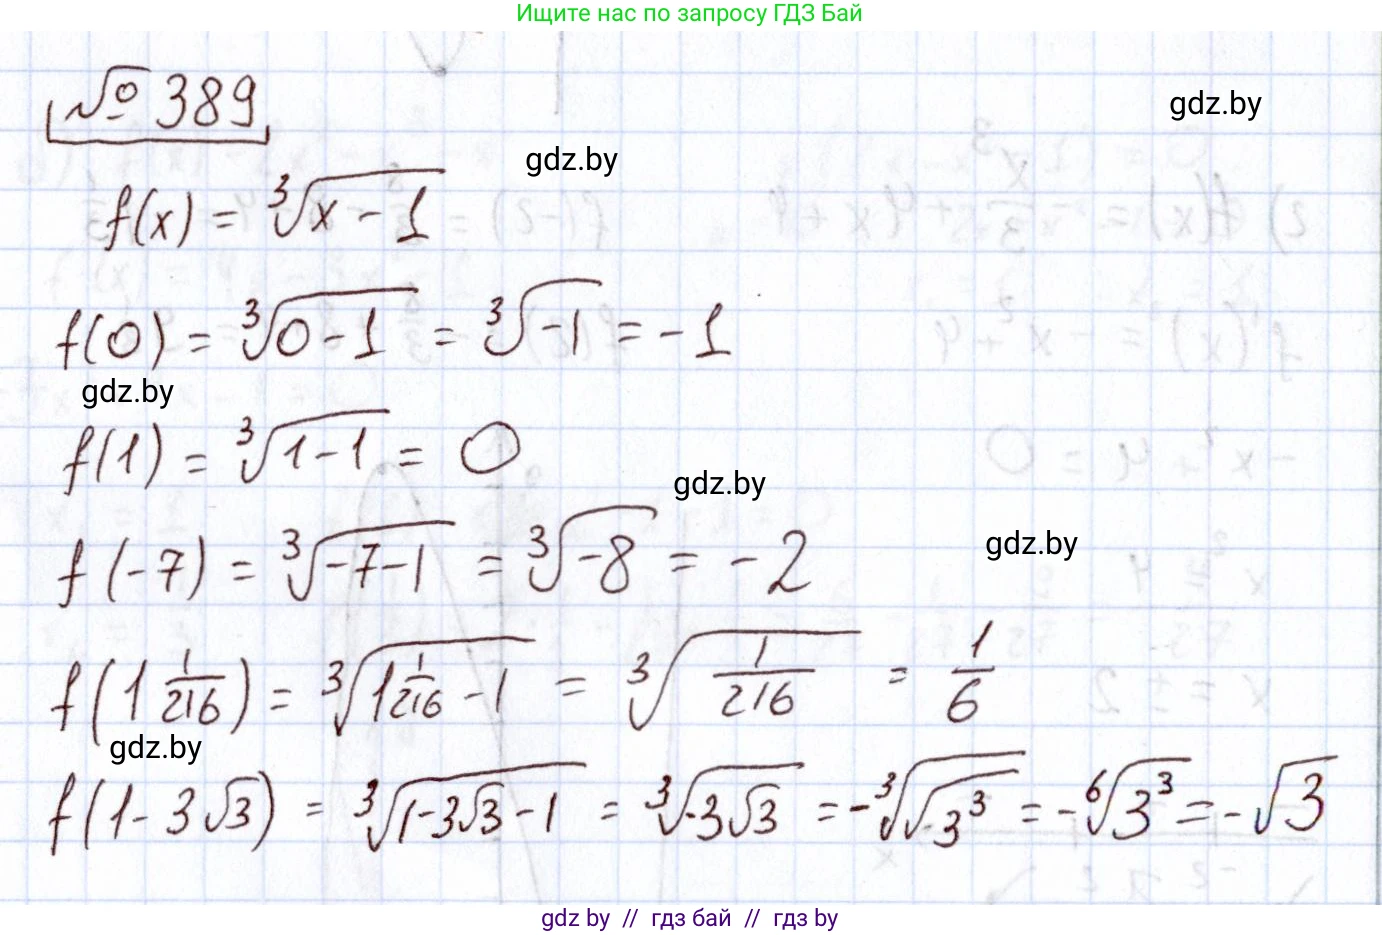 Ищите нас по запросу ГДЗ Бай
gdz.by
№ 389
gdz.by
f(x) = ∛(x - 1)
f(0) = ∛(0-1) = ∛(-1) = -1
gdz.by
f(1) = ∛(1-1) = 0
gdz.by
f(-7) = ∛(-7-1) = ∛(-8) = -2
gdz.by
f(1 1/216) = ∛(1 1/216 - 1) = ∛(1/216) = 1/6
gdz.by
f(1-3√3) = ∛(1-3√3-1) = ∛(-3√3) = -∛(√(-3³)) = -⁶√(3³) = -√3
gdz by // гдз бай // гдз by